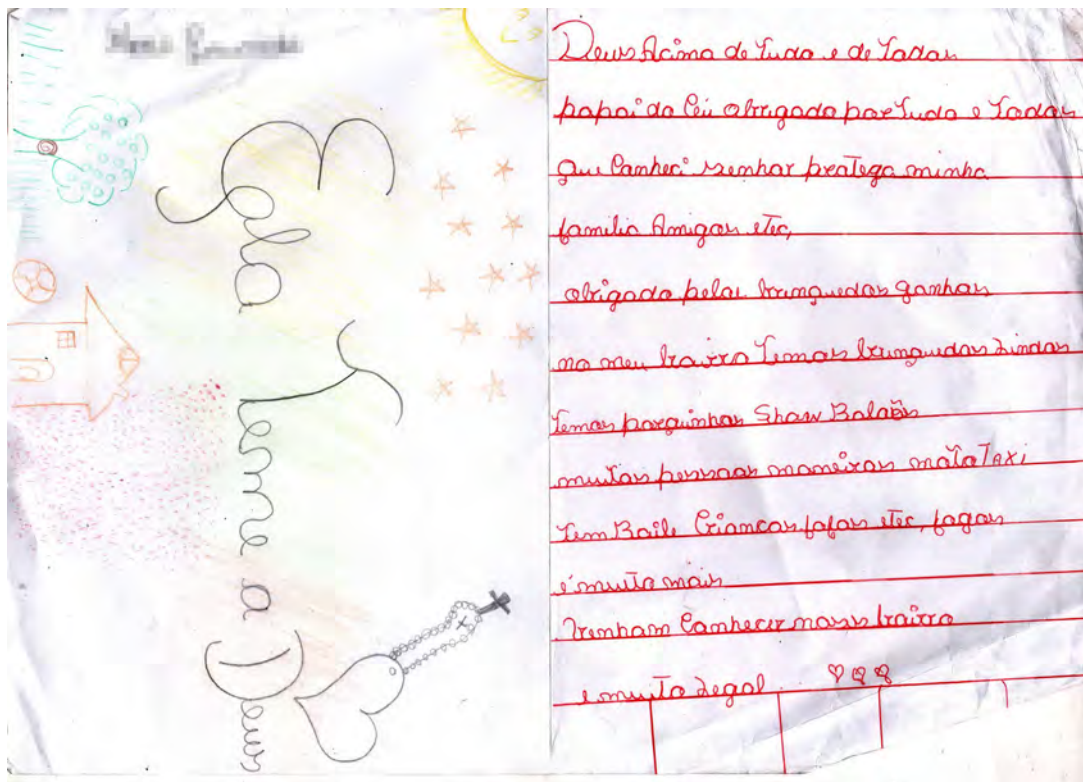 Ela Teme a Deus
Deus Acima de Tudo e de Todos
papai do Céu obrigada por Tudo e Todos
que Conheci senhor protega minha
familia Amigos etec,
obrigada pelos brinquedos ganhos
no meu bairro Temos brinquedos Lindos
Temos parquinhos Show Balões
muitas pessoas maneiras motoTAXI
Tem Baile Criancas fofas etec, fogos
é muito mais
Venham Conhecer nosso bairro
é muito Legal